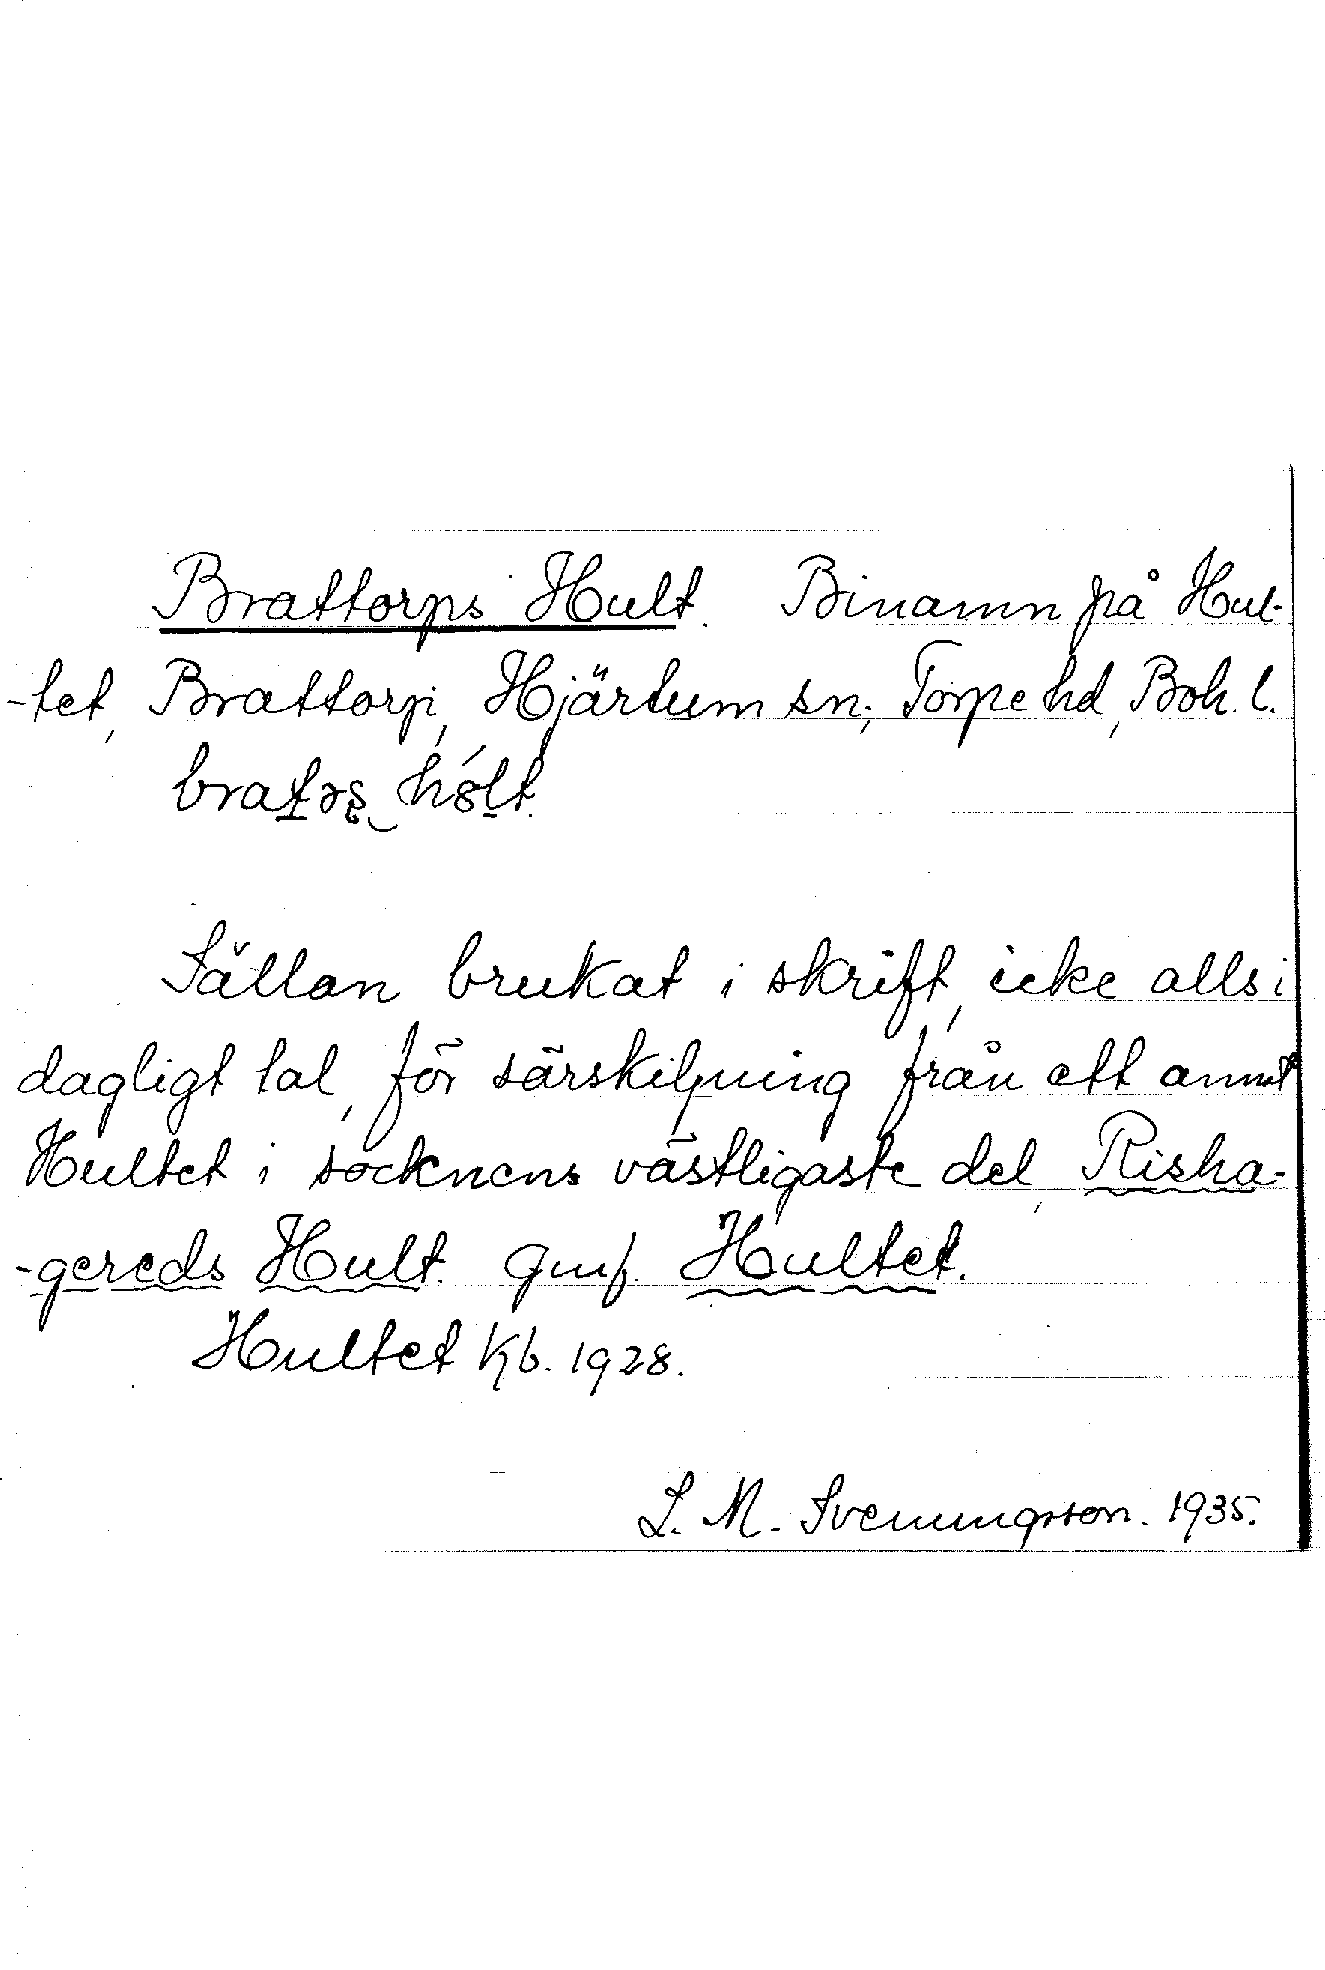 Brattorps Hult. Binamn på Hul-
-tet, Brattorp, Hjärtum sn; Torpe hd, Boh. l.
Sällan brukat i skrift, icke alls i
dagligt tal, för särskiljning från ett annat
Hultet i socknens västligaste del, Risha-
-gereds Hult. Jmf. Hultet.
Hultet Kb. 1928.
L. M. Svenungsson. 1935.